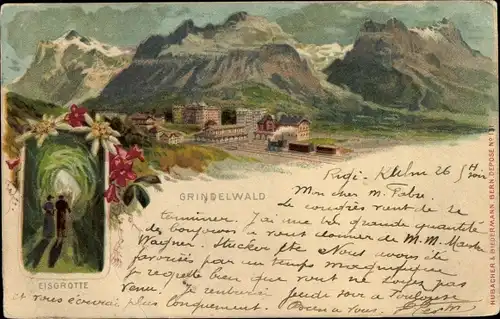 GRINDELWALD
EISGROTTE
HUBACHER & BIEDERMANN BERN DEPOSÉ
Rigi, Kulm 26
Mon cher M. Fabre
Le congrès vient de se
terminer. J'ai une très grande quantité
des bonjours à vous donner de M. M.
Wagner. Stucker etc Nous avons été
favorisés par un temps magnifique
Je regrette bien que vous ne soyez pas
venu. Je rentrerai jeudi soir à Toulouse
et vous écrirai plus longuement. Bien à vous.